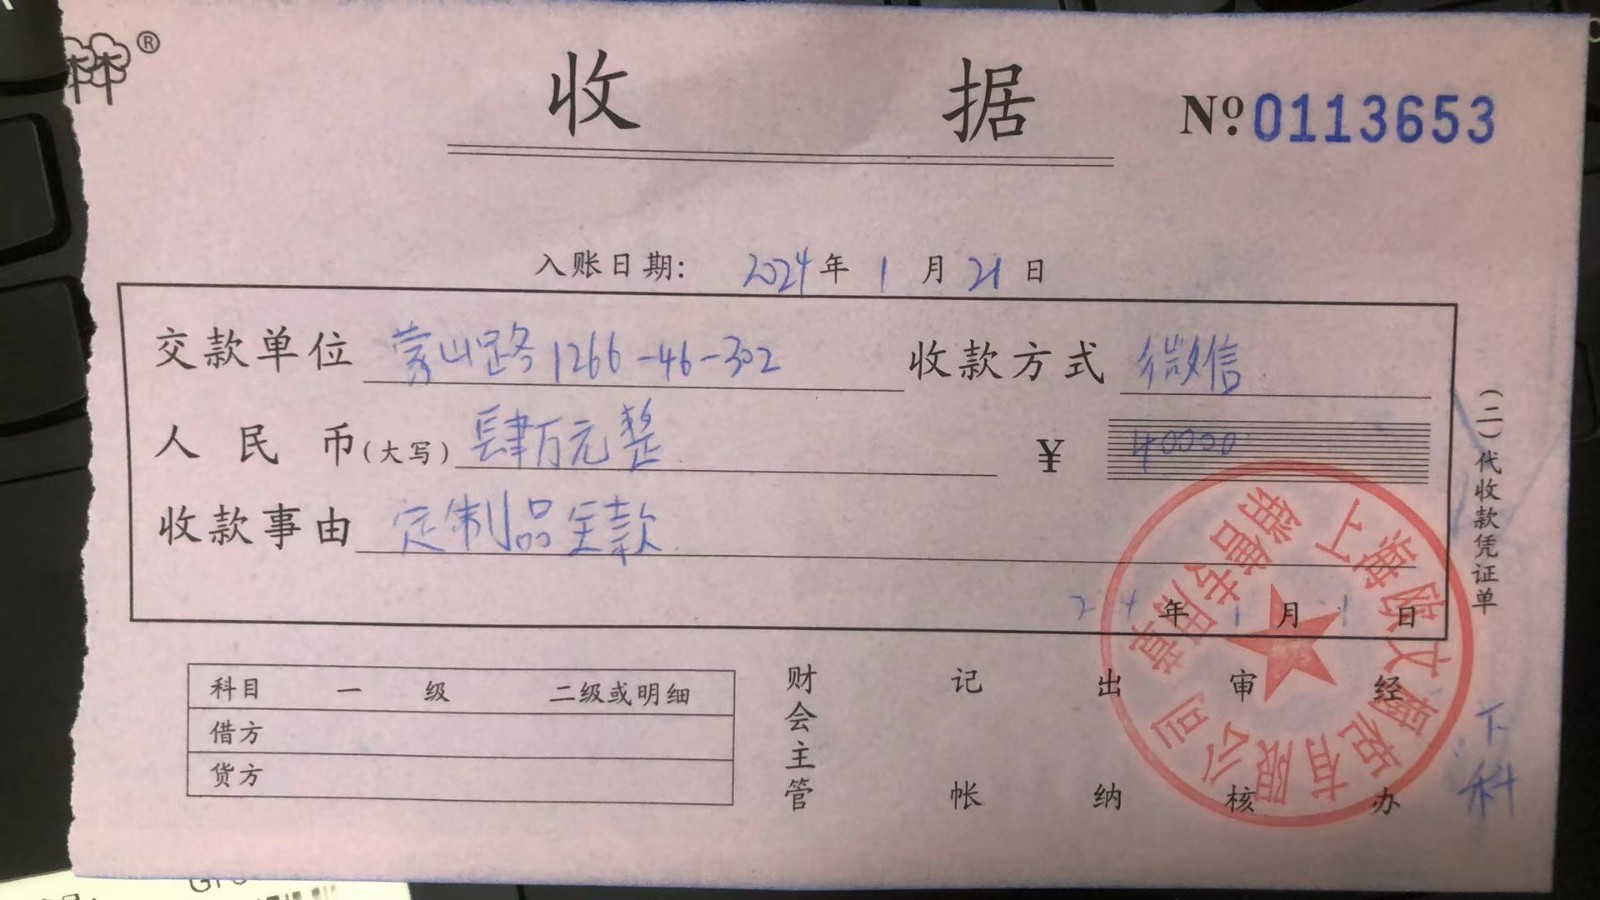 ®
收 据 Nº 0113653
入账日期: 2024 年 1 月 21 日
交款单位 蒙山路1266-46-302 收款方式 微信
人民币(大写) 肆万元整 ¥ 40000
收款事由 定制品全款
24 年 1 月 日
(二)代收款凭证单
科目 一级 二级或明细
借方
贷方
财会主管 记帐 出纳 审核 经办
上海欧文橱柜有限公司
销售专用章